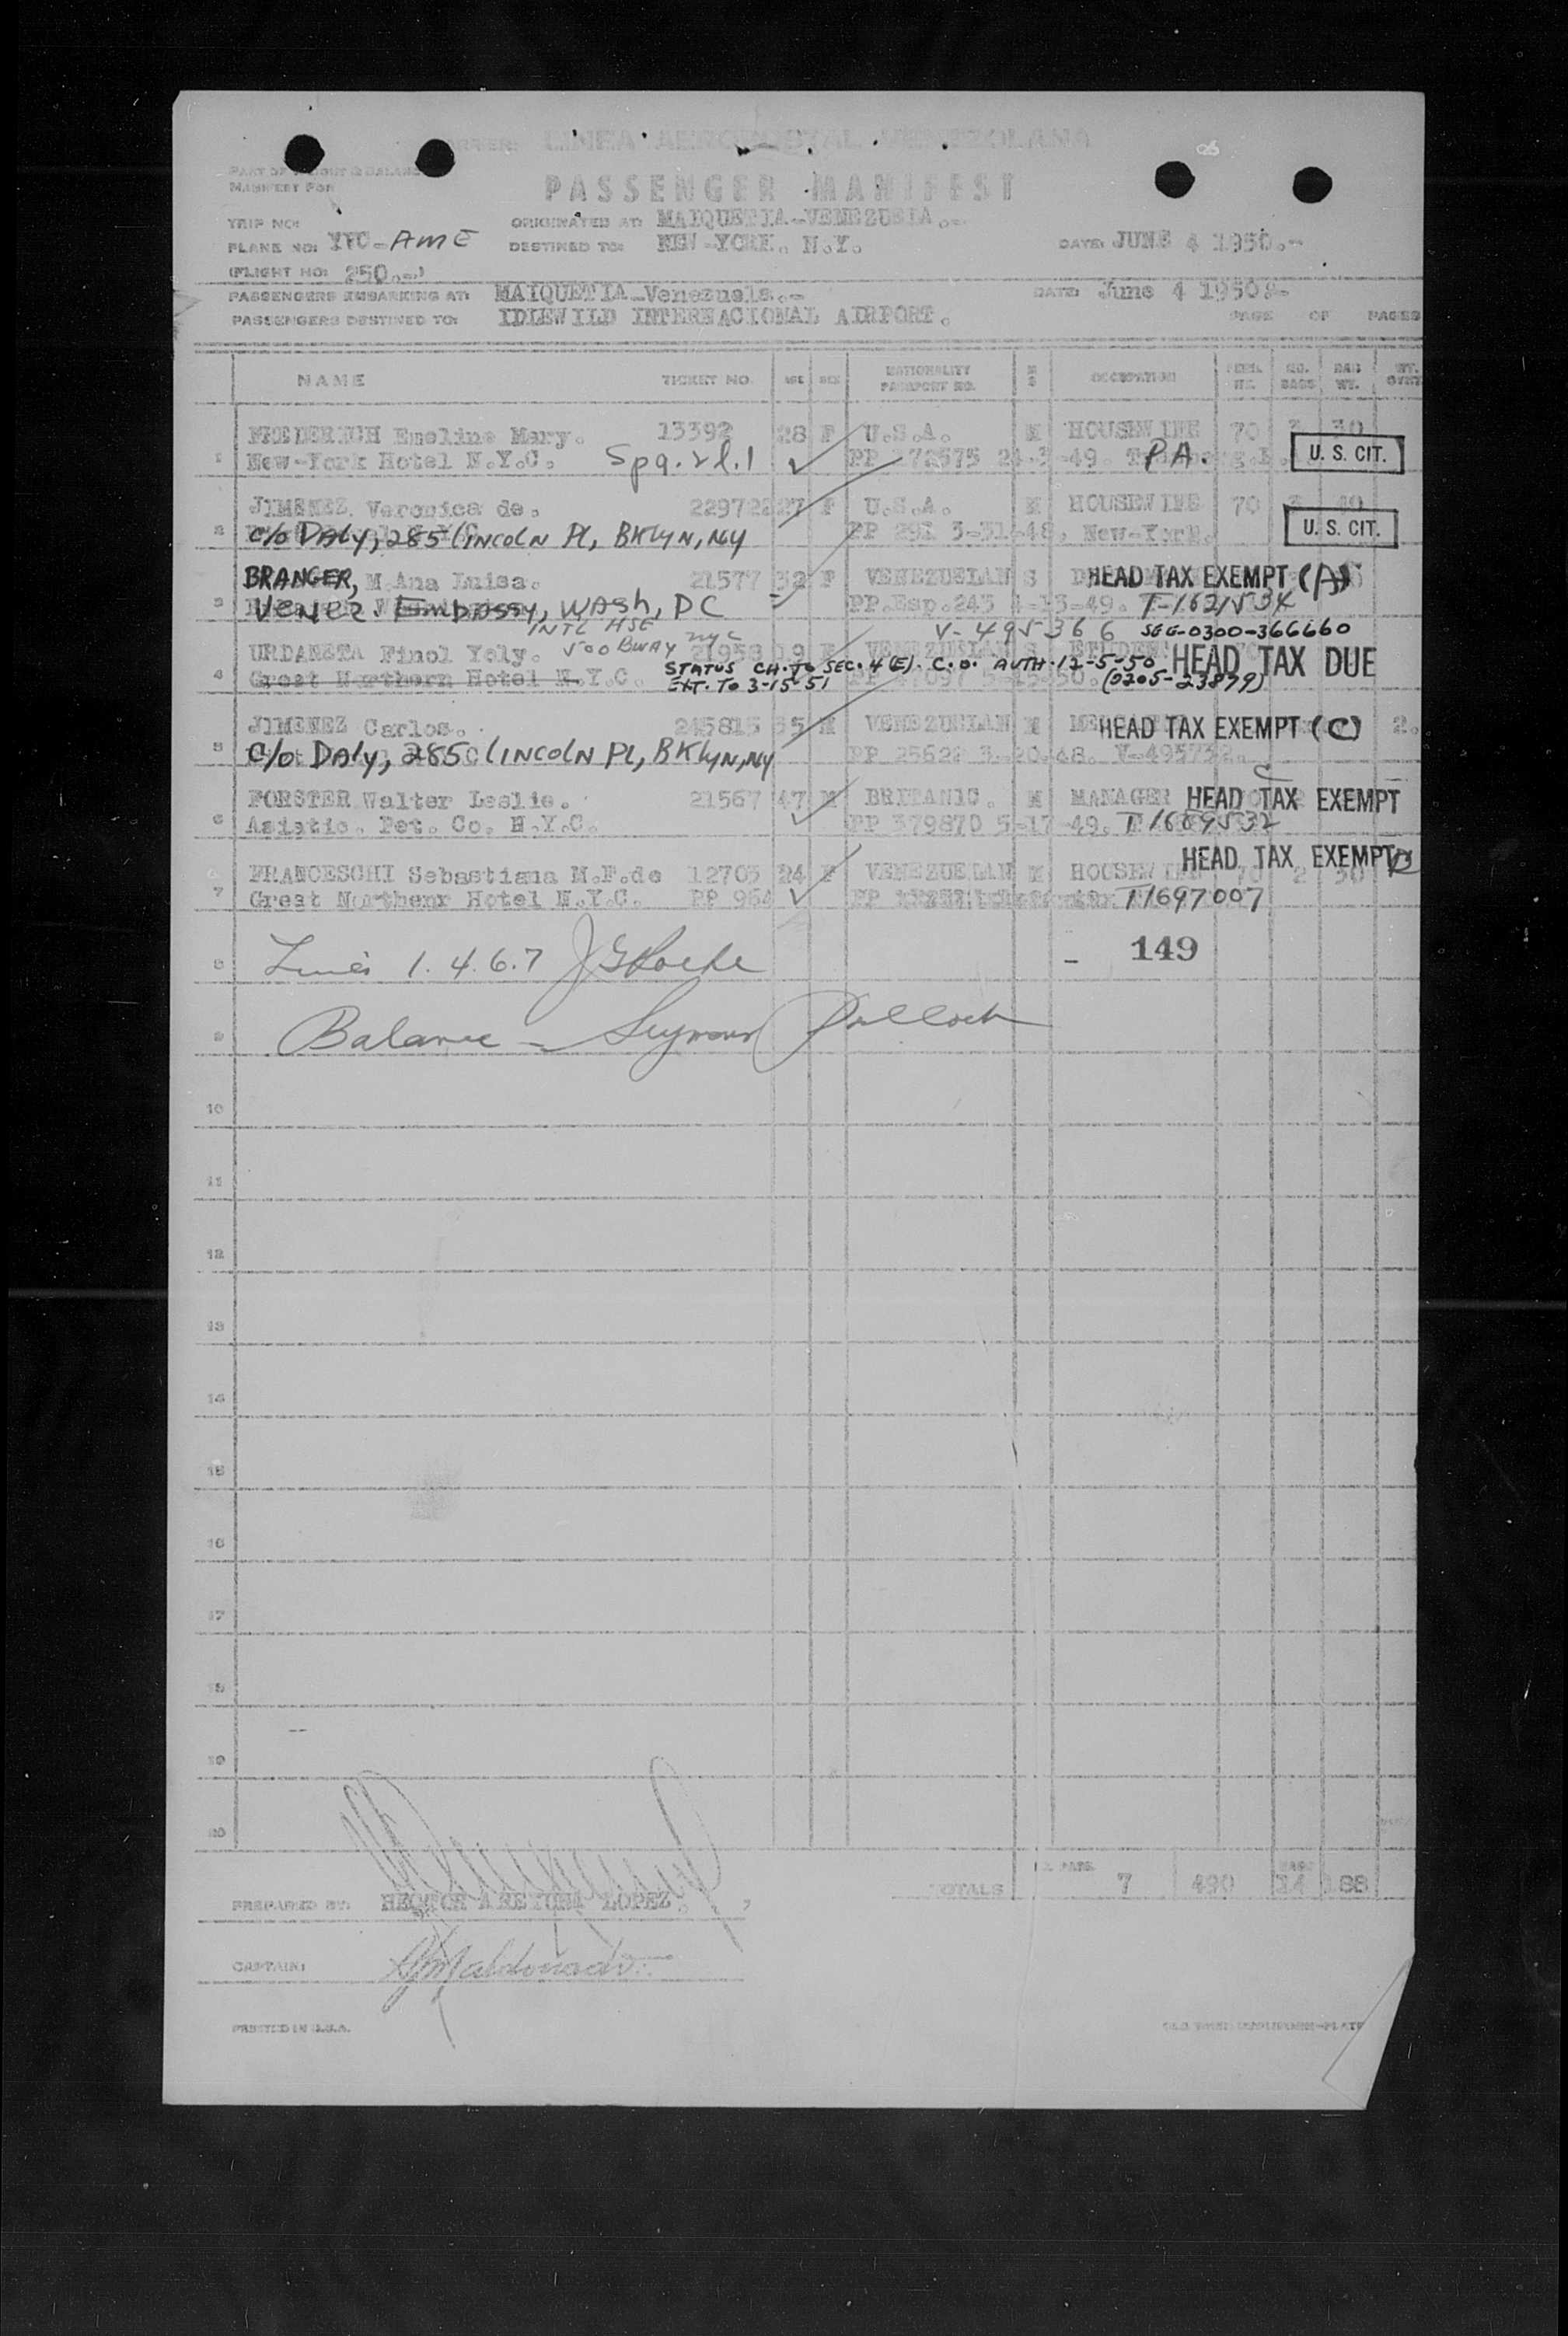 LINEA AEROPOSTAL VENEZOLANA
PASSENGER MANIFEST
MANIFEST FOR
TRIP NO: ORIGINATED AT: MAIQUETIA-VENEZUELA.-
PLANE NO: YVC-AME DESTINED TO: NEW-YORK. N.Y. DATE: JUNE 4 1950.-
(FLIGHT NO: 250.-)
PASSENGERS EMBARKING AT: MAIQUETIA-Venezuela.- DATE: June 4 1950.-
PASSENGERS DESTINED TO: IDLEWILD INTERNACIONAL AIRPORT. PAGE OF PAGES
NAME TICKET NO. AGE SEX NATIONALITY PASSPORT NO. M S OCCUPATION NO. BAGS BAG WT.
FREDERICH Emeline Mary. 13392 28 F U.S.A. M HOUSEWIFE 70 3 30
1 New-York Hotel N.Y.C. PP 272575 49. P.A. U. S. CIT.
JIMENEZ Veronica de. 22972 27 F U.S.A. M HOUSEWIFE 70 3 40
2 c/o DALY, 285 LINCOLN PL, BKLYN, NY PP 291 3-31-48. New-York. U. S. CIT.
BRANGER, M Ana Luisa. 21577 32 F VENEZUELAN S HEAD TAX EXEMPT (A)
3 VENEZ. EMBASSY, WASH, DC PP.Esp.243 4-13-49. T-1621534
INTL HSE V-495366 SEG-0300-366660
URDANETA Finol Yoly. 500 BWAY NYC 21958 19 F VENEZUELAN S HEAD TAX DUE
STATUS CH. TO SEC. 4 (E). C.O. AUTH. 12-5-50
4 Great Northern Hotel N.Y.C. EXT. TO 3-15-51 (0205-23879)
JIMENEZ Carlos. 245815 35 M VENEZUELAN M HEAD TAX EXEMPT (C) 2.
5 c/o DALY, 285 LINCOLN PL, BKLYN, NY PP 25622 3-20-48. V-495732.
FORSTER Walter Leslie. 21567 47 M BRITANIC. M MANAGER HEAD TAX EXEMPT C
6 Asiatic. Pet. Co. N.Y.C. PP 379870 5-17-49. T1669532
FRANCESCHI Sebastiana M.F.de 12703 24 F VENEZUELAN M HOUSEWIFE 70 2 30 HEAD TAX EXEMPT
7 Great Northenr Hotel N.Y.C. PP 964 T1697007
8 Lines 1. 4. 6. 7 149
9 Balance - Seymour Pollock
10
11
12
13
14
15
16
17
18
19
20
TOTALS 7 490 14 188
PREPARED BY: HECTOR LOPEZ.
CAPTAIN: Maldonado
PRINTED IN U.S.A.